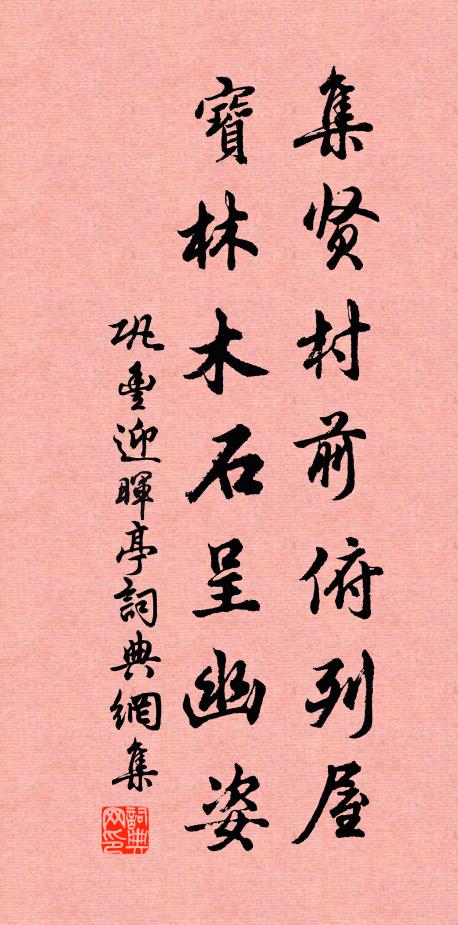 集贤村前俯列屋
寶林木石呈幽姿
巩豐迎暉亭詞典網集
詞典
网印